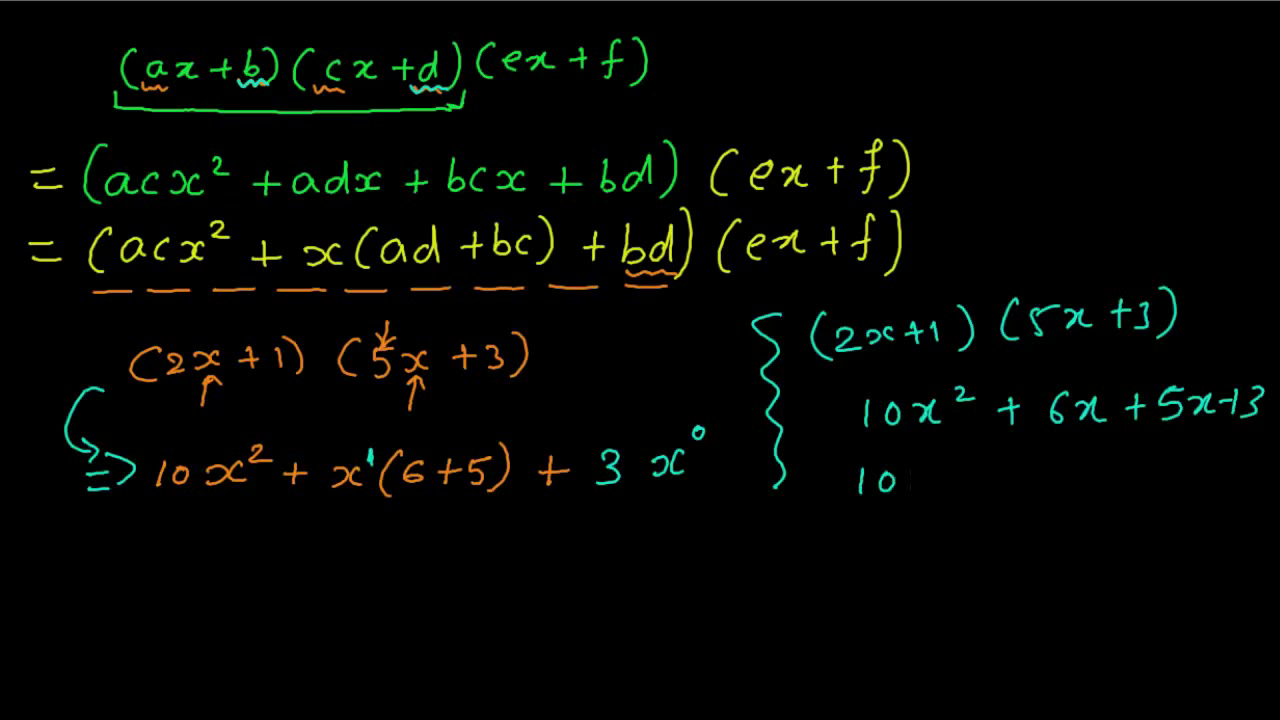 (ax+b)(cx+d)(ex+f)
= (acx² + adx + bcx + bd) (ex+f)
= (acx² + x(ad+bc) + bd) (ex+f)
(2x+1) (5x+3)
⇒ 10x² + x¹(6+5) + 3 x⁰
(2x+1) (5x+3)
10x² + 6x + 5x+3
10